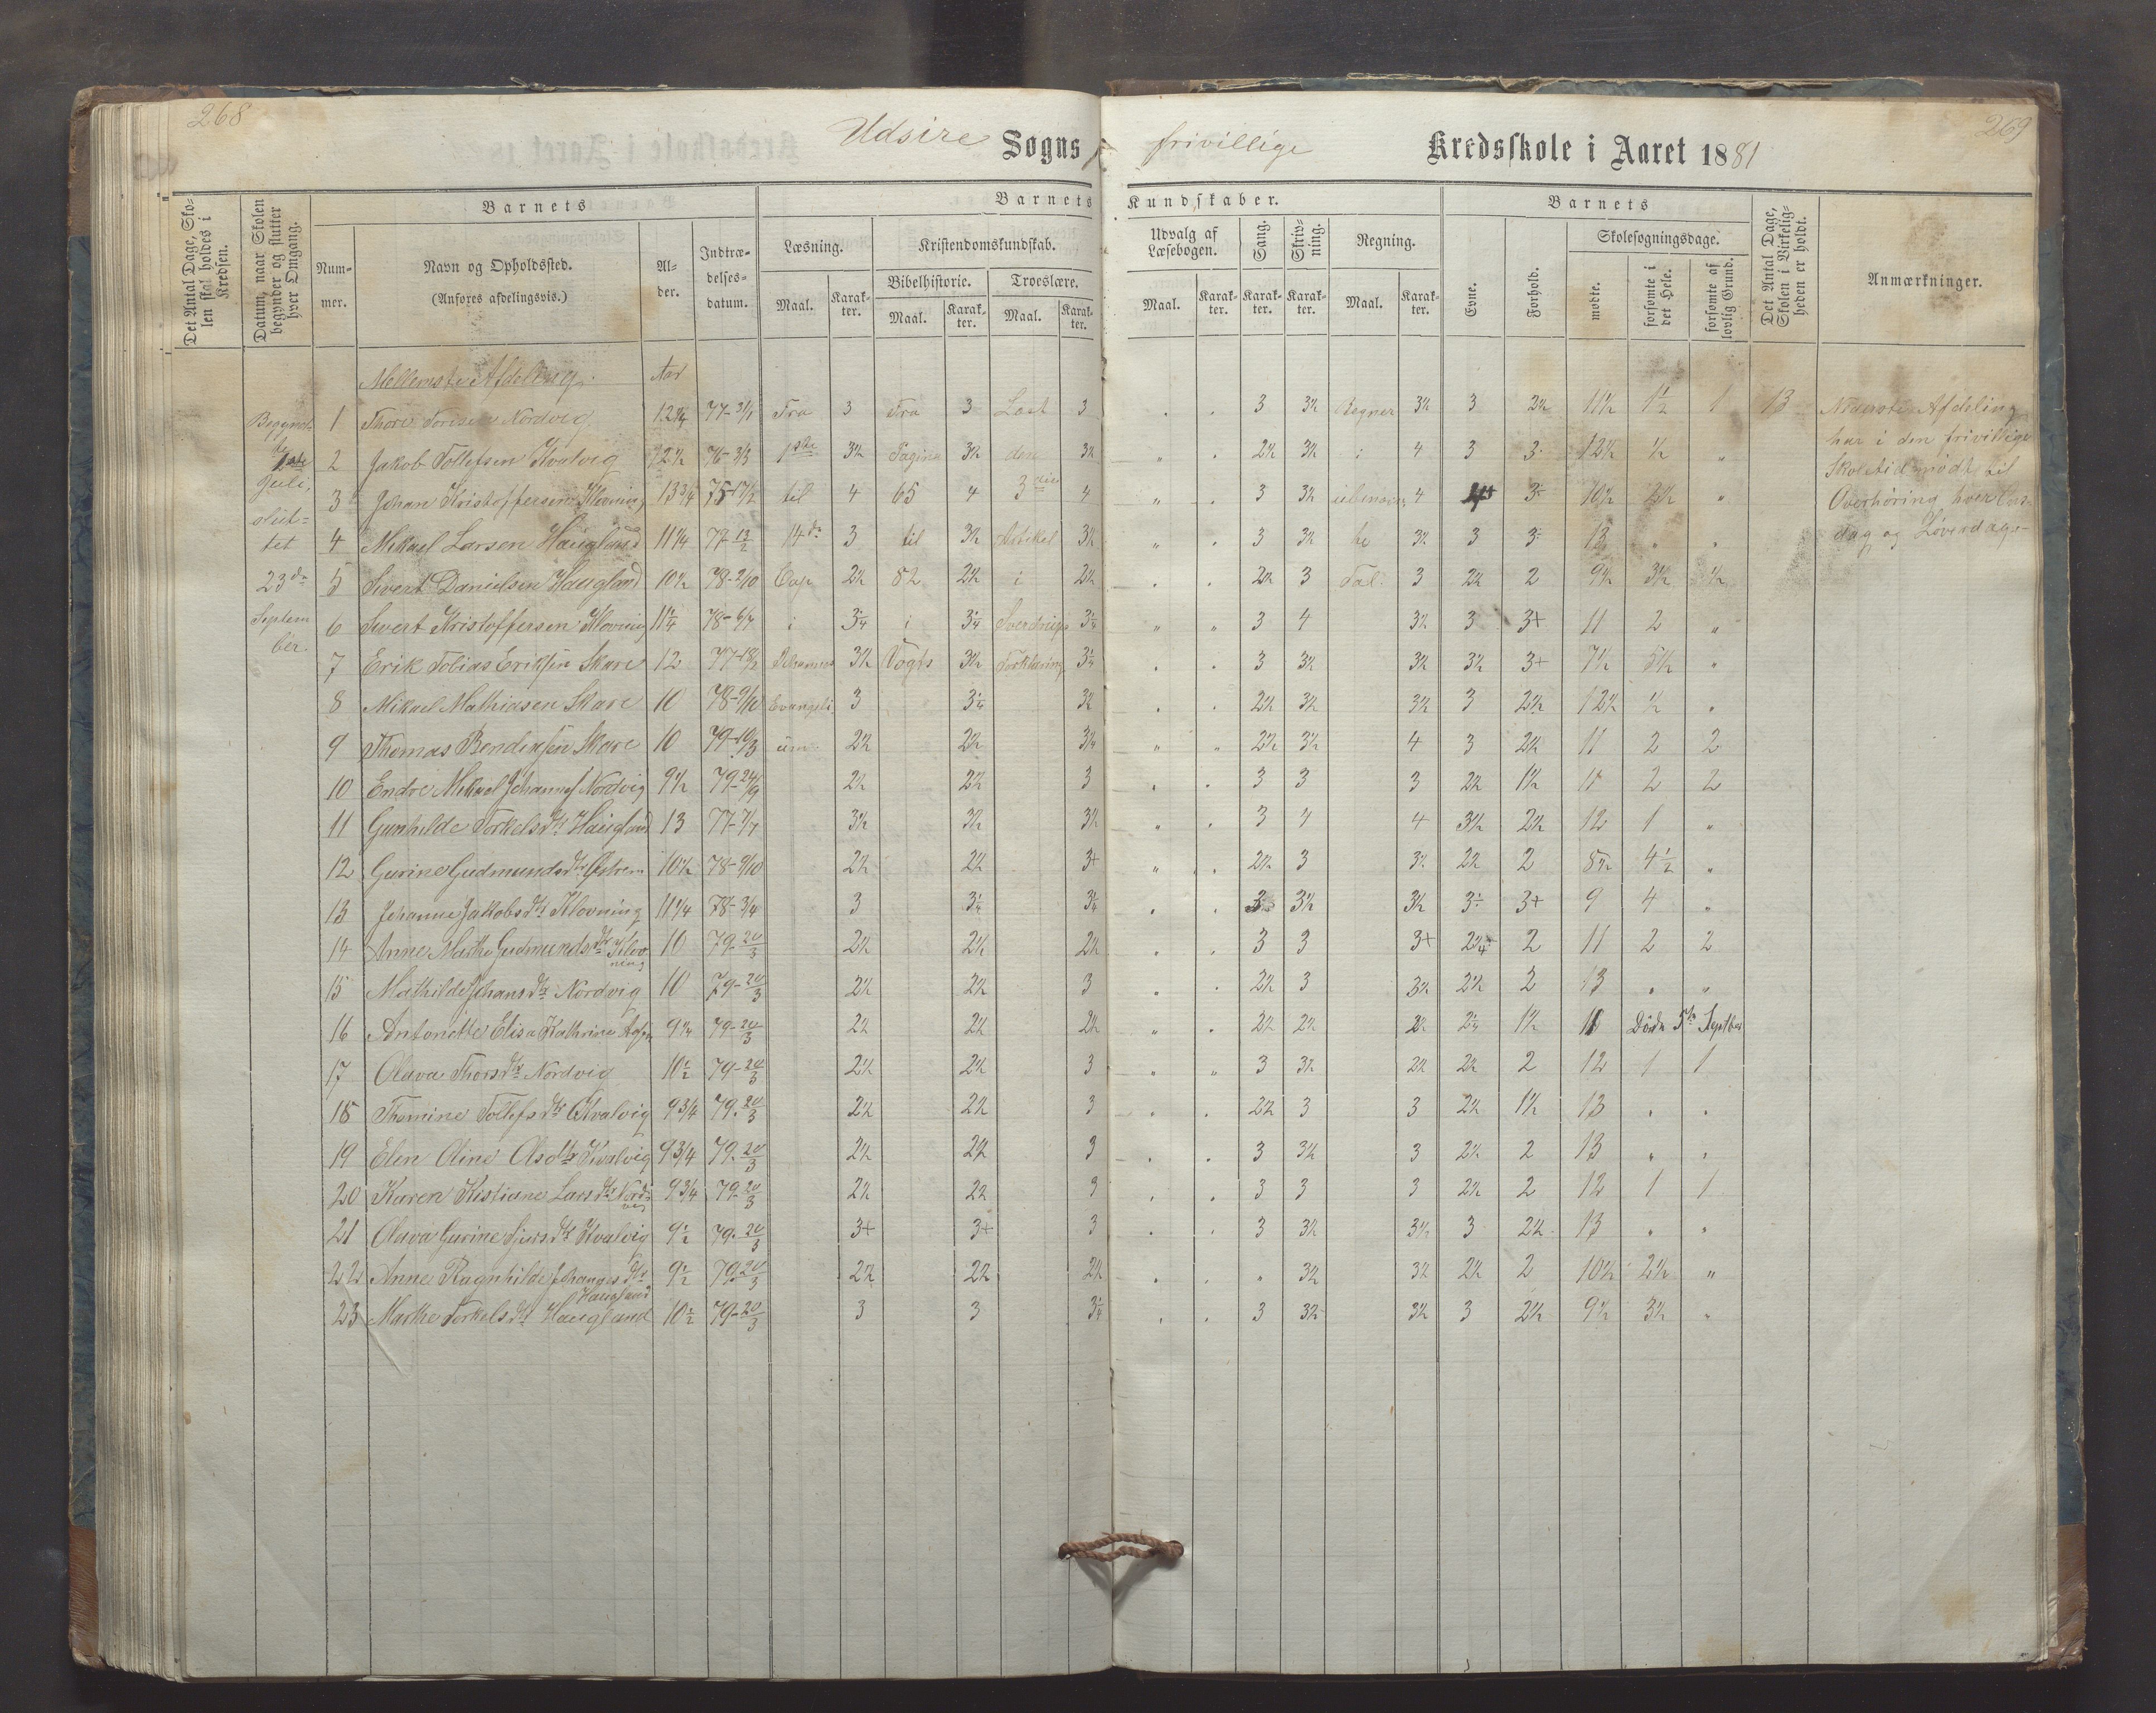 268
269
Udsire Sogns frivillige Kredsskole i Aaret 1881
Det Antal Dage, Skolen skal holdes i Kredsen.
Datum, naar Skolen begynder og slutter hver Omgang.
Barnets
Nummer.
Navn og Opholdssted.
(Anføres afdelingsvis.)
Alder.
Indtrædelsesdatum.
Barnets Kundskaber.
Læsning.
Maal.
Karakter.
Kristendomskundskab.
Bibelhistorie.
Maal.
Karakter.
Troeslære.
Maal.
Karakter.
Udvalg af Læsebogen.
Maal.
Karakter.
Sang.
Karakter.
Skrivning.
Karakter.
Regning.
Maal.
Karakter.
Barnets
Evne.
Forhold.
Skolesøgningsdage.
mødte.
forsømte i det Hele.
forsømte af lovlig Grund.
Det Antal Dage, Skolen i Virkeligheden er holdt.
Anmærkninger.
Mellemste Afdeling. Aar
1 Thore Toresen Nordvig 77-3/1 Fra 3 Fra 3 Last 3 3 3½ Regner 3½ 3 2½ 11½ 1½ 1 13
2 Jakob Tollefsen Kvalvig 12½ 76-3/3 1ste 3½ Pagina 3½ den 3½ 2½ 3½ i 4 3 3 12½ ½ „
3 Johan Kristoffersen Klovning 13¾ 75-17/2 til 4 65 4 4 3 3½ 4 3 10½ 2½ „
4 Mikael Larsen Haugland 11¼ 77-13/2 14de 3 til 3½ Artikel 3½ 3 3½ 3½ 3 3 13 „ „
5 Sivert Danielsen Haugland 10½ 78-2/10 Cap 2½ 82 2½ i 2½ 2½ 3 Tal 3 2½ 2 9½ 3½ ½
6 Sivert Kristoffersen Klovning 11¼ 78-6/7 i i Sverdrups 3 4 3½ 3 3+ 11 2 „
7 Erik Tobias Eriksen Skare 12 Johannes 3½ Vogts 3½ Forklaring 3 3½ 3½ 3½ 3+ 7½ 5½ „
8 Mikael Mathiasen Skare 10 78-9/10 Evangeli 3 3½ 2½ 3½ 3½ 3 2½ 12½ ½ „
9 Thomas Bendiksen Skare 10 79-10/3 um 2½ 2½ 2½ 3½ 4 3 2½ 11 2 2
10 Endre Mikael Johannes Nordvig 9½ 79-24/9 2½ 2½ 3 3 3 3 2½ 1½ 11 2 2
11 Gunhilde Torkelsdtr Haugland 13 77-7/7 3½ 3½ 3½ 3 4 4 3½ 2½ 12 1 „
12 Gurine Gudmundsdtr Østrem 10½ 78-9/10 2½ 2½ 3+ 2½ 3 3½ 2½ 2 8½ 4½ „
13 Johanne Jakobsdtr Klovning 11¼ 78-3/4 3 3 3½ 3½ 3+ 9 4 „
14 Anne Marthe Gudmundsdtr Klovning 10 79-20/3 2½ 2½ 2½ 3 3 3+ 2 11 2 2
15 Mathilde Johansdtr Nordvig 10 79-20/3 2½ 2½ 3 2½ 3 3½ 2½ 2 13 „ „
16 Antonette Elisa Kathrine 79-20/3 2½ 2½ 2½ 2½ 2½ 2½ 1½ Døde 5te Septbr
17 Olava Thorsdtr Nordvig 10½ 79-20/3 2½ 2½ 3 3 3½ 2½ 2½ 2 12 1 1
18 Thomine Tollefsdtr Kvalvig 9¾ 79-20/3 2½ 2½ 3 2½ 3 3 2½ 1½ 13 „ „
19 Elen Oline Olsdtr Kvalvig 9¾ 79-20/3 2½ 2½ 3 3 3½ 3 2½ 2 13 „ „
20 Karen Kistiane Larsdtr Nordvig 9¾ 79-20/3 2½ 2½ 3 3 3 3 2½ 2 12 1 1
21 Olava Gurine Sjursdtr Kvalvig 9½ 79-20/3 3+ 3+ 3 3 3½ 3½ 3 2½ 13 „ „
22 Anne Ragnhilde Johannesdtr Haugland 9½ 79-20/3 2½ 2½ 2½ „ 3½ 3½ 2½ 2 10½ 2½ „
23 Marthe Torkelsdtr Haugland 10½ 79-20/3 3 3 3 3½ 3½ 3 2½ 9½ 3½ „
Begyndt
1ste
Juli,
slut-
tet
23de
Septem
ber.
Nederste Afdeling
har i den frivillige
Skoletid mødt til
Overhøring hver Ons-
dag og Løverdag.